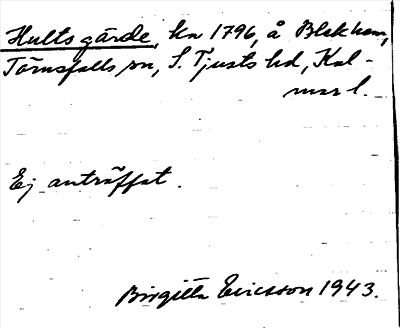 Hultsgärde, ha 1796, å Blekhem,
Törnsfalls sn, S. Tjusts hd, Kal-
mar l.
Ej anträffat.
Birgitta Ericsson 1943.